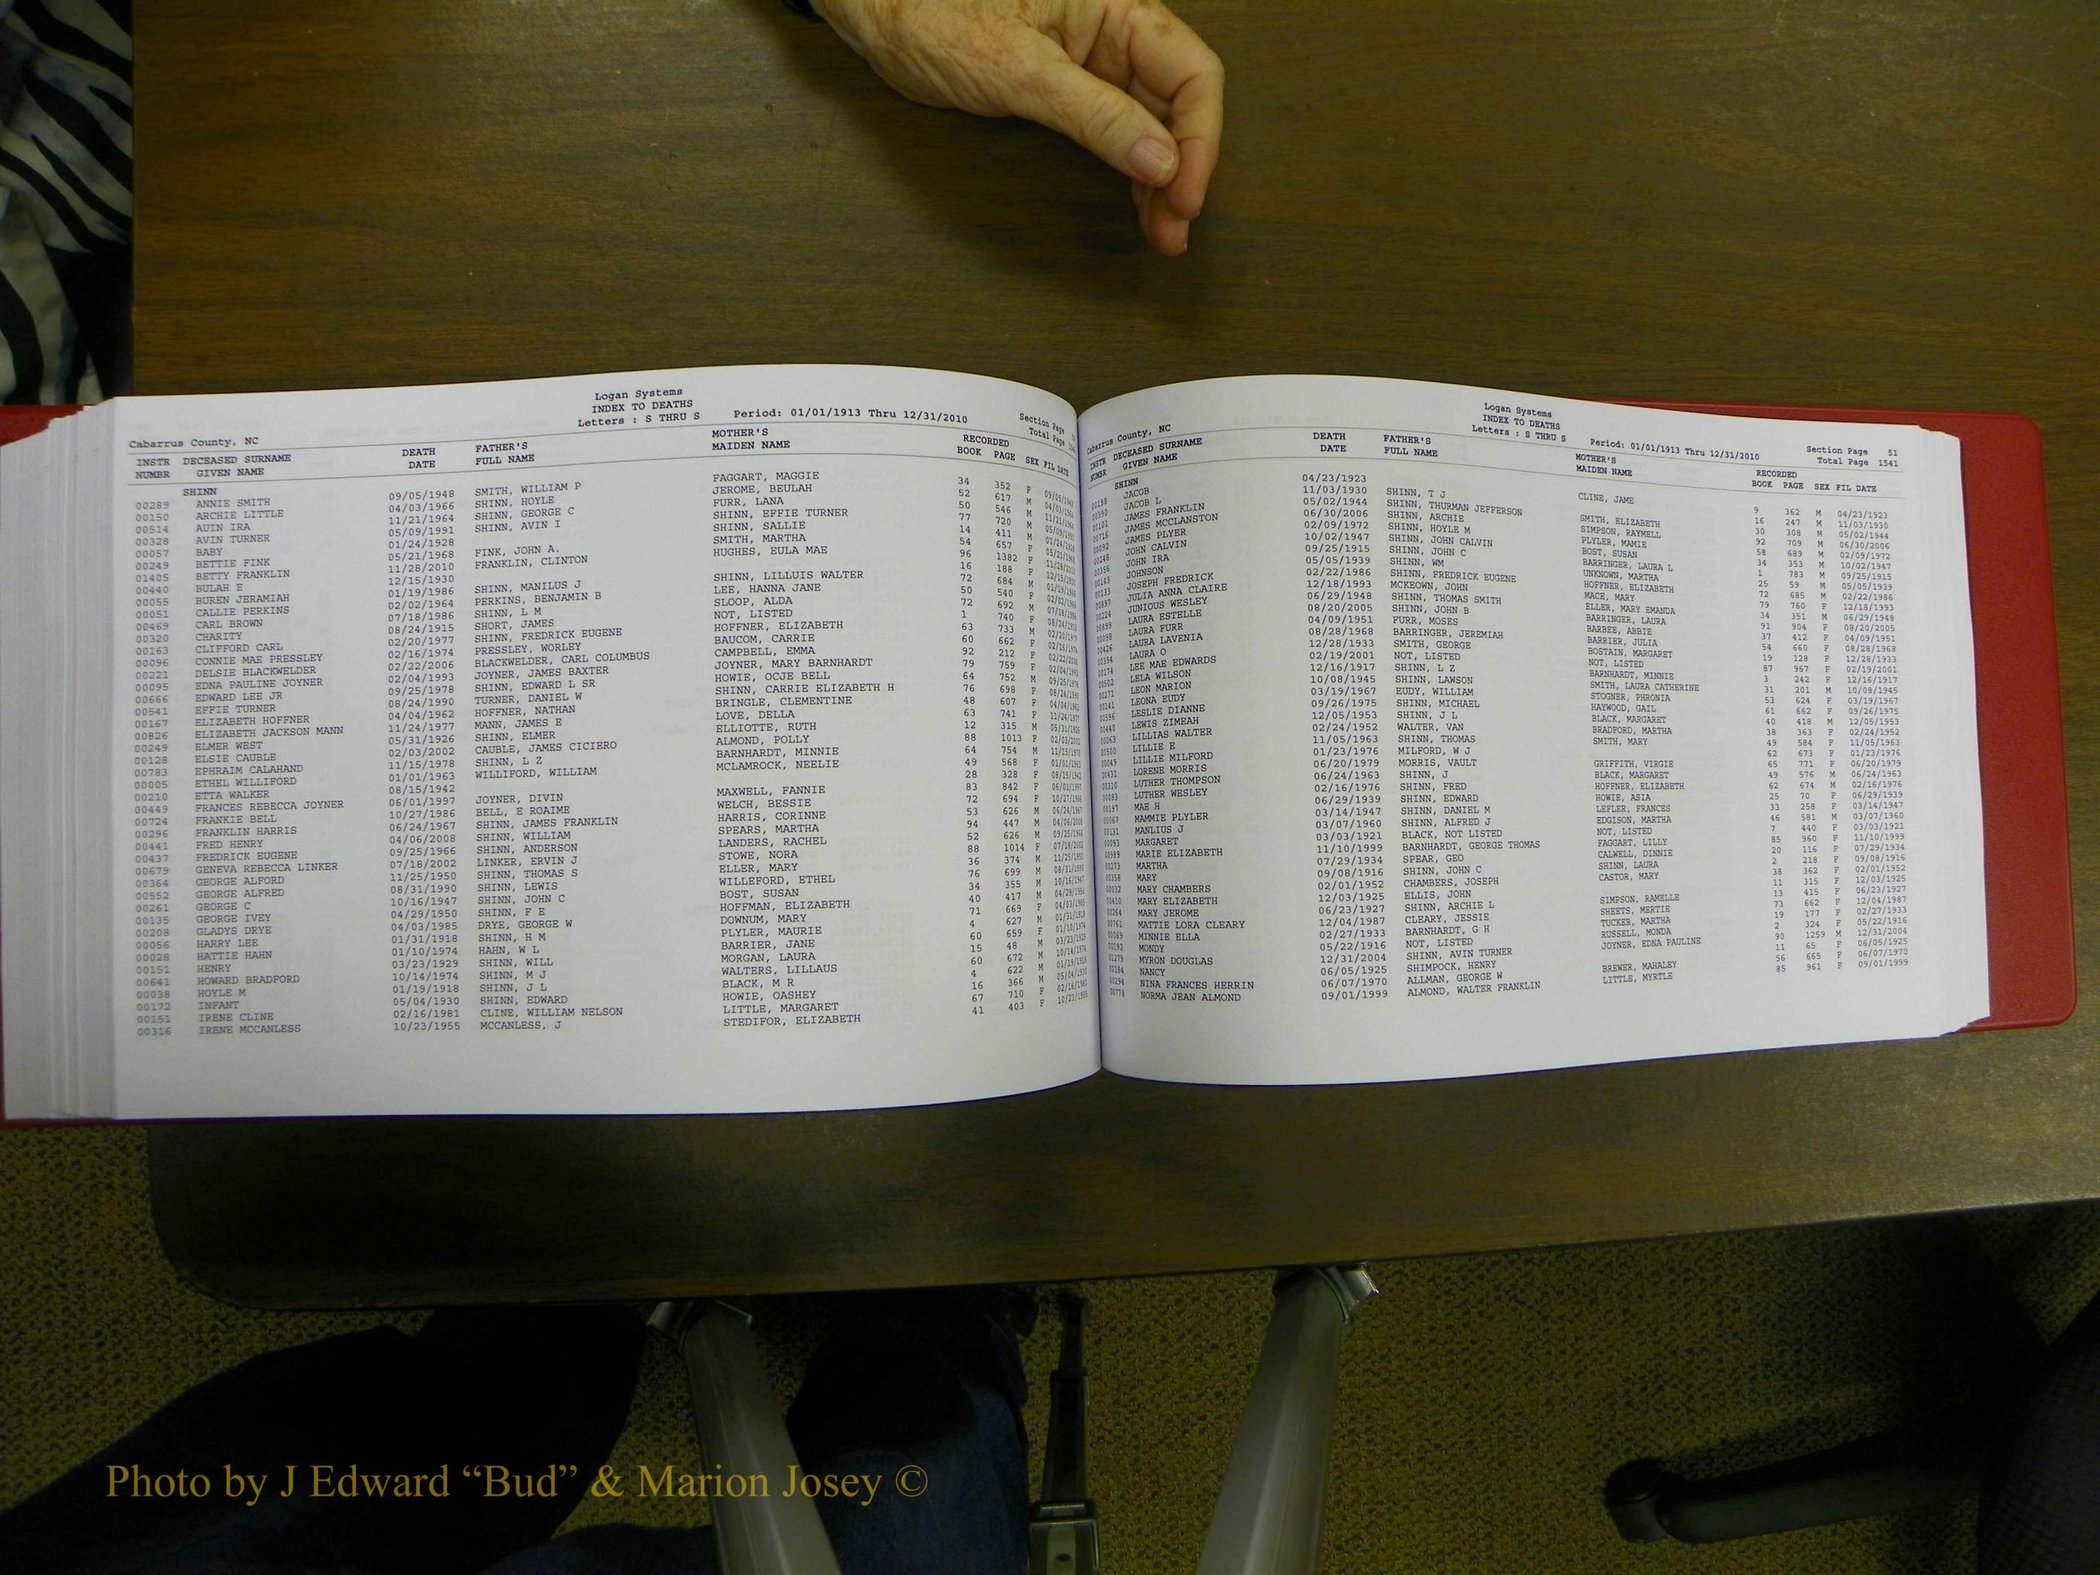 Logan Systems
INDEX TO DEATHS
Letters : S THRU S Period: 01/01/1913 Thru 12/31/2010
Cabarrus County, NC Section Page
Total Page
INSTR DECEASED SURNAME DEATH FATHER'S MOTHER'S RECORDED
NUMBR GIVEN NAME DATE FULL NAME MAIDEN NAME BOOK PAGE SEX FIL DATE
SHINN
00289 ANNIE SMITH 09/05/1948 SMITH, WILLIAM P FAGGART, MAGGIE 34 352 F
00150 ARCHIE LITTLE 04/03/1966 SHINN, HOYLE JEROME, BEULAH 52 617 M
00514 AUIN IRA 11/21/1964 SHINN, GEORGE C FURR, LANA 50 546 M
00328 AVIN TURNER 05/09/1991 SHINN, AVIN I SHINN, EFFIE TURNER 77 720 M
00057 BABY 01/24/1928 SHINN, SALLIE 14 411 M
00249 BETTIE FINK 05/21/1968 FINK, JOHN A. SMITH, MARTHA 54 657 F
01405 BETTY FRANKLIN 11/28/2010 FRANKLIN, CLINTON HUGHES, EULA MAE 96 1382 F
00440 BULAH E 12/15/1930 16 188 F
00055 BUREN JERAMIAH 01/19/1986 SHINN, MANILUS J SHINN, LILLUIS WALTER 72 684 M
00051 CALLIE PERKINS 02/02/1964 PERKINS, BENJAMIN B LEE, HANNA JANE 50 540 F
00469 CARL BROWN 07/18/1986 SHINN, L M SLOOP, ALDA 72 692 M
00320 CHARITY 08/24/1915 SHORT, JAMES NOT, LISTED 1 740 F
00163 CLIFFORD CARL 02/20/1977 SHINN, FREDRICK EUGENE HOFFNER, ELIZABETH 63 733 M
00096 CONNIE MAE PRESSLEY 02/16/1974 PRESSLEY, WORLEY BAUCOM, CARRIE 60 662 F
00221 DELSIE BLACKWELDER 02/22/2006 BLACKWELDER, CARL COLUMBUS CAMPBELL, EMMA 92 212 F
00095 EDNA PAULINE JOYNER 02/04/1993 JOYNER, JAMES BAXTER JOYNER, MARY BARNHARDT 79 759 F
00666 EDWARD LEE JR 09/25/1978 SHINN, EDWARD L SR HOWIE, OCJE BELL 64 752 M
00541 EFFIE TURNER 08/24/1990 TURNER, DANIEL W SHINN, CARRIE ELIZABETH H 76 698 F
00167 ELIZABETH HOFFNER 04/04/1962 HOFFNER, NATHAN BRINGLE, CLEMENTINE 48 607 F
00826 ELIZABETH JACKSON MANN 11/24/1977 MANN, JAMES E LOVE, DELLA 63 741 F
00249 ELMER WEST 05/31/1926 SHINN, ELMER ELLIOTTE, RUTH 12 315 M
00128 ELSIE CAUBLE 02/03/2002 CAUBLE, JAMES CICIERO ALMOND, POLLY 88 1013 F
00783 EPHRAIM CALAHAND 11/15/1978 SHINN, L Z BARNHARDT, MINNIE 64 754 M
00005 ETHEL WILLIFORD 01/01/1963 WILLIFORD, WILLIAM MCLAMROCK, NEELIE 49 568 F
00210 ETTA WALKER 08/15/1942 28 328 F
00449 FRANCES REBECCA JOYNER 06/01/1997 JOYNER, DIVIN MAXWELL, FANNIE 83 842 F
00724 FRANKIE BELL 10/27/1986 BELL, E ROAIME WELCH, BESSIE 72 694 F
00296 FRANKLIN HARRIS 06/24/1967 SHINN, JAMES FRANKLIN HARRIS, CORINNE 53 626 M
00441 FRED HENRY 04/06/2008 SHINN, WILLIAM SPEARS, MARTHA 94 447 M
00437 FREDRICK EUGENE 09/25/1966 SHINN, ANDERSON LANDERS, RACHEL 52 626 M
00679 GENEVA REBECCA LINKER 07/18/2002 LINKER, ERVIN J STOWE, NORA 88 1014 F
00364 GEORGE ALFORD 11/25/1950 SHINN, THOMAS S ELLER, MARY 36 374 M
00552 GEORGE ALFRED 08/31/1990 SHINN, LEWIS WILLEFORD, ETHEL 76 699 M
00261 GEORGE C 10/16/1947 SHINN, JOHN C BOST, SUSAN 34 355 M
00135 GEORGE IVEY 04/29/1950 SHINN, F E HOFFMAN, ELIZABETH 40 417 M
00208 GLADYS DRYE 04/03/1985 DRYE, GEORGE W DOWNUM, MARY 71 669 F
00056 HARRY LEE 01/31/1918 SHINN, H M PLYLER, MAURIE 4 627 M
00028 HATTIE HAHN 01/10/1974 HAHN, W L BARRIER, JANE 60 659 F
00151 HENRY 03/23/1929 SHINN, WILL MORGAN, LAURA 15 48 M
00641 HOWARD BRADFORD 10/14/1974 SHINN, M J WALTERS, LILLAUS 60 672 M
00038 HOYLE M 01/19/1918 SHINN, J L BLACK, M R 4 622 M
00172 INFANT 05/04/1930 SHINN, EDWARD HOWIE, OASHEY 16 366 M
00151 IRENE CLINE 02/16/1981 CLINE, WILLIAM NELSON LITTLE, MARGARET 67 710 F
00316 IRENE MCCANLESS 10/23/1955 MCCANLESS, J STEDIFOR, ELIZABETH 41 403 F
Logan Systems
INDEX TO DEATHS
Letters : S THRU S Period: 01/01/1913 Thru 12/31/2010
Cabarrus County, NC Section Page 51
Total Page 1541
INSTR DECEASED SURNAME DEATH FATHER'S MOTHER'S RECORDED
NUMBR GIVEN NAME DATE FULL NAME MAIDEN NAME BOOK PAGE SEX FIL DATE
SHINN
00198 JACOB 04/23/1923 CLINE, JAME 9 362 M 04/23/1923
00390 JACOB L 11/03/1930 SHINN, T J 16 247 M 11/03/1930
00101 JAMES FRANKLIN 05/02/1944 SHINN, THURMAN JEFFERSON SMITH, ELIZABETH 30 308 M 05/02/1944
00716 JAMES MCCLANSTON 06/30/2006 SHINN, ARCHIE SIMPSON, RAYMELL 92 709 M 06/30/2006
00092 JAMES PLYER 02/09/1972 SHINN, HOYLE M PLYLER, MAMIE 58 689 M 02/09/1972
00248 JOHN CALVIN 10/02/1947 SHINN, JOHN CALVIN BOST, SUSAN 34 353 M 10/02/1947
00356 JOHN IRA 09/25/1915 SHINN, JOHN C BARRINGER, LAURA L 1 783 M 09/25/1915
00143 JOHNSON 05/05/1939 SHINN, WM UNKNOWN, MARTHA 25 59 M 05/05/1939
00133 JOSEPH FREDRICK 02/22/1986 SHINN, FREDRICK EUGENE HOFFNER, ELIZABETH 72 685 M 02/22/1986
00897 JULIA ANNA CLAIRE 12/18/1993 MCKEOWN, JOHN MACE, MARY 79 760 F 12/18/1993
00224 JUNIOUS WESLEY 06/29/1948 SHINN, THOMAS SMITH ELLER, MARY EMANDA 34 351 M 06/29/1948
00899 LAURA ESTELLE 08/20/2005 SHINN, JOHN B BARRINGER, LAURA 91 904 F 08/20/2005
00098 LAURA FURR 04/09/1951 FURR, MOSES BARBEE, ABBIE 37 412 F 04/09/1951
00426 LAURA LAVENIA 08/28/1968 BARRINGER, JEREMIAH BARRIER, JULIA 54 660 F 08/28/1968
00394 LAURA O 12/28/1933 SMITH, GEORGE BOSTAIN, MARGARET 19 128 F 12/28/1933
00174 LEE MAE EDWARDS 02/19/2001 NOT, LISTED NOT, LISTED 87 967 F 02/19/2001
00502 LELA WILSON 12/16/1917 SHINN, L Z BARNHARDT, MINNIE 3 242 F 12/16/1917
00271 LEON MARION 10/08/1945 SHINN, LAWSON SMITH, LAURA CATHERINE 31 201 M 10/08/1945
00141 LEONA EUDY 03/19/1967 EUDY, WILLIAM STOGNER, PHRONIA 53 624 F 03/19/1967
00596 LESLIE DIANNE 09/26/1975 SHINN, MICHAEL HAYWOOD, GAIL 61 662 F 09/26/1975
00440 LEWIS ZIMEAH 12/05/1953 SHINN, J L BLACK, MARGARET 40 418 M 12/05/1953
00063 LILLIAS WALTER 02/24/1952 WALTER, VAN BRADFORD, MARTHA 38 363 F 02/24/1952
00500 LILLIE E 11/05/1963 SHINN, THOMAS SMITH, MARY 49 584 F 11/05/1963
00049 LILLIE MILFORD 01/23/1976 MILFORD, W J 62 673 F 01/23/1976
00431 LORENE MORRIS 06/20/1979 MORRIS, VAULT GRIFFITH, VIRGIE 65 771 F 06/20/1979
00310 LUTHER THOMPSON 06/24/1963 SHINN, J BLACK, MARGARET 49 576 M 06/24/1963
00083 LUTHER WESLEY 02/16/1976 SHINN, FRED HOFFNER, ELIZABETH 62 674 M 02/16/1976
00197 MAE H 06/29/1939 SHINN, EDWARD HOWIE, ASIA 25 70 F 06/29/1939
00067 MAMMIE PLYLER 03/14/1947 SHINN, DANIEL M LEFLER, FRANCES 33 258 F 03/14/1947
00131 MANLIUS J 03/07/1960 SHINN, ALFRED J EDGISON, MARTHA 46 581 M 03/07/1960
00093 MARGARET 03/03/1921 BLACK, NOT LISTED NOT, LISTED 7 440 F 03/03/1921
00989 MARIE ELIZABETH 11/10/1999 BARNHARDT, GEORGE THOMAS FAGGART, LILLY 85 960 F 11/10/1999
00273 MARTHA 07/29/1934 SPEAR, GEO CALWELL, DINNIE 20 116 F 07/29/1934
00358 MARY 09/08/1916 SHINN, JOHN C SHINN, LAURA 2 218 F 09/08/1916
00032 MARY CHAMBERS 02/01/1952 CHAMBERS, JOSEPH CASTOR, MARY 38 362 F 02/01/1952
00410 MARY ELIZABETH 12/03/1925 ELLIS, JOHN 11 315 F 12/03/1925
00264 MARY JEROME 06/23/1927 SHINN, ARCHIE L SIMPSON, RAMELLE 13 415 F 06/23/1927
00761 MATTIE LORA CLEARY 12/04/1987 CLEARY, JESSIE SHEETS, MERTIE 73 662 F 12/04/1987
00069 MINNIE ELLA 02/27/1933 BARNHARDT, G H TUCKER, MARTHA 19 177 F 02/27/1933
00192 MONDY 05/22/1916 NOT, LISTED RUSSELL, MONDA 2 324 F 05/22/1916
01279 MYRON DOUGLAS 12/31/2004 SHINN, AVIN TURNER JOYNER, EDNA PAULINE 90 1259 M 12/31/2004
00184 NANCY 06/05/1925 SHIMPOCK, HENRY 11 65 F 06/05/1925
00294 NINA FRANCES HERRIN 06/07/1970 ALLMAN, GEORGE W BREWER, MAHALEY 56 665 F 06/07/1970
00778 NORMA JEAN ALMOND 09/01/1999 ALMOND, WALTER FRANKLIN LITTLE, MYRTLE 85 961 F 09/01/1999
Photo by J Edward “Bud” & Marion Josey ©